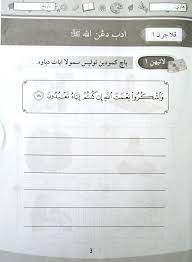 ڤلاجرن 1
ادب دڠن الله ﷻ
لاتيهن 1
باچ کمودين توليس سمولا ايات دباوه.
وَٱشْكُرُوا۟ نِعْمَتَ ٱللَّهِ إِن كُنتُمْ إِيَّاهُ تَعْبُدُونَ
3